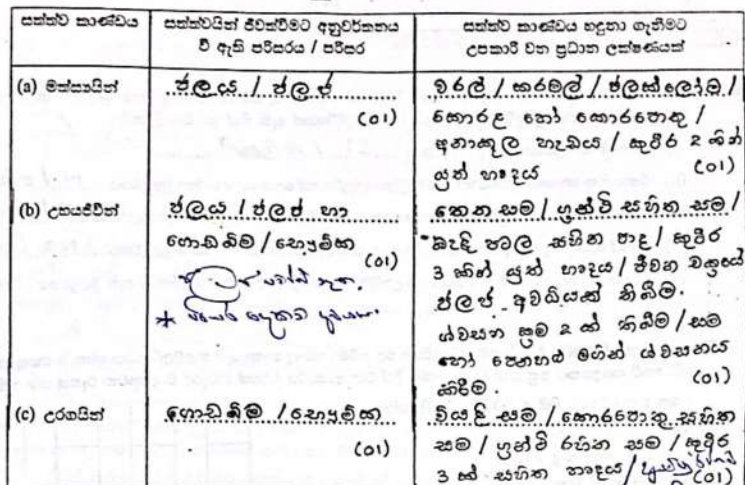 සත්ත්ව කාණ්ඩය
සත්ත්වයින් ජීවත්වීමට අනුවර්තනය
වී ඇති පරිසරය / පරිසර
සත්ත්ව කාණ්ඩය හඳුනා ගැනීමට
උපකාරී වන ප්‍රධාන ලක්ෂණයක්
(a) මත්ස්‍යයින්
ජලය / ජලජ
(01)
වරල් / කරමල් / ජලක්ලෝම /
කොරළ හෝ කොරපොතු /
අනාකූල හැඩය / කුටීර 2 කින්
යුත් හෘදය (01)
(b) උභයජීවින්
ජලය / ජලජ හා
ගොඩබිම / භෞමික
(01)
තෙත සම / ග්‍රන්ථි සහිත සම /
බැඳි පටල සහිත පාද / කුටීර
3 කින් යුත් හෘදය / ජීවන චක්‍රයේ
ජලජ අවධියක් තිබීම.
ශ්වසන ක්‍රම 2 ක් තිබීම / සම
හෝ පෙනහළු මගින් ශ්වසනය
කිරීම (01)
(c) උරගයින්
ගොඩබිම / භෞමික
(01)
වියළි සම / කොරපොතු සහිත
සම / ග්‍රන්ථි රහිත සම / කුටීර
3 ක් සහිත හෘදය /
(01)